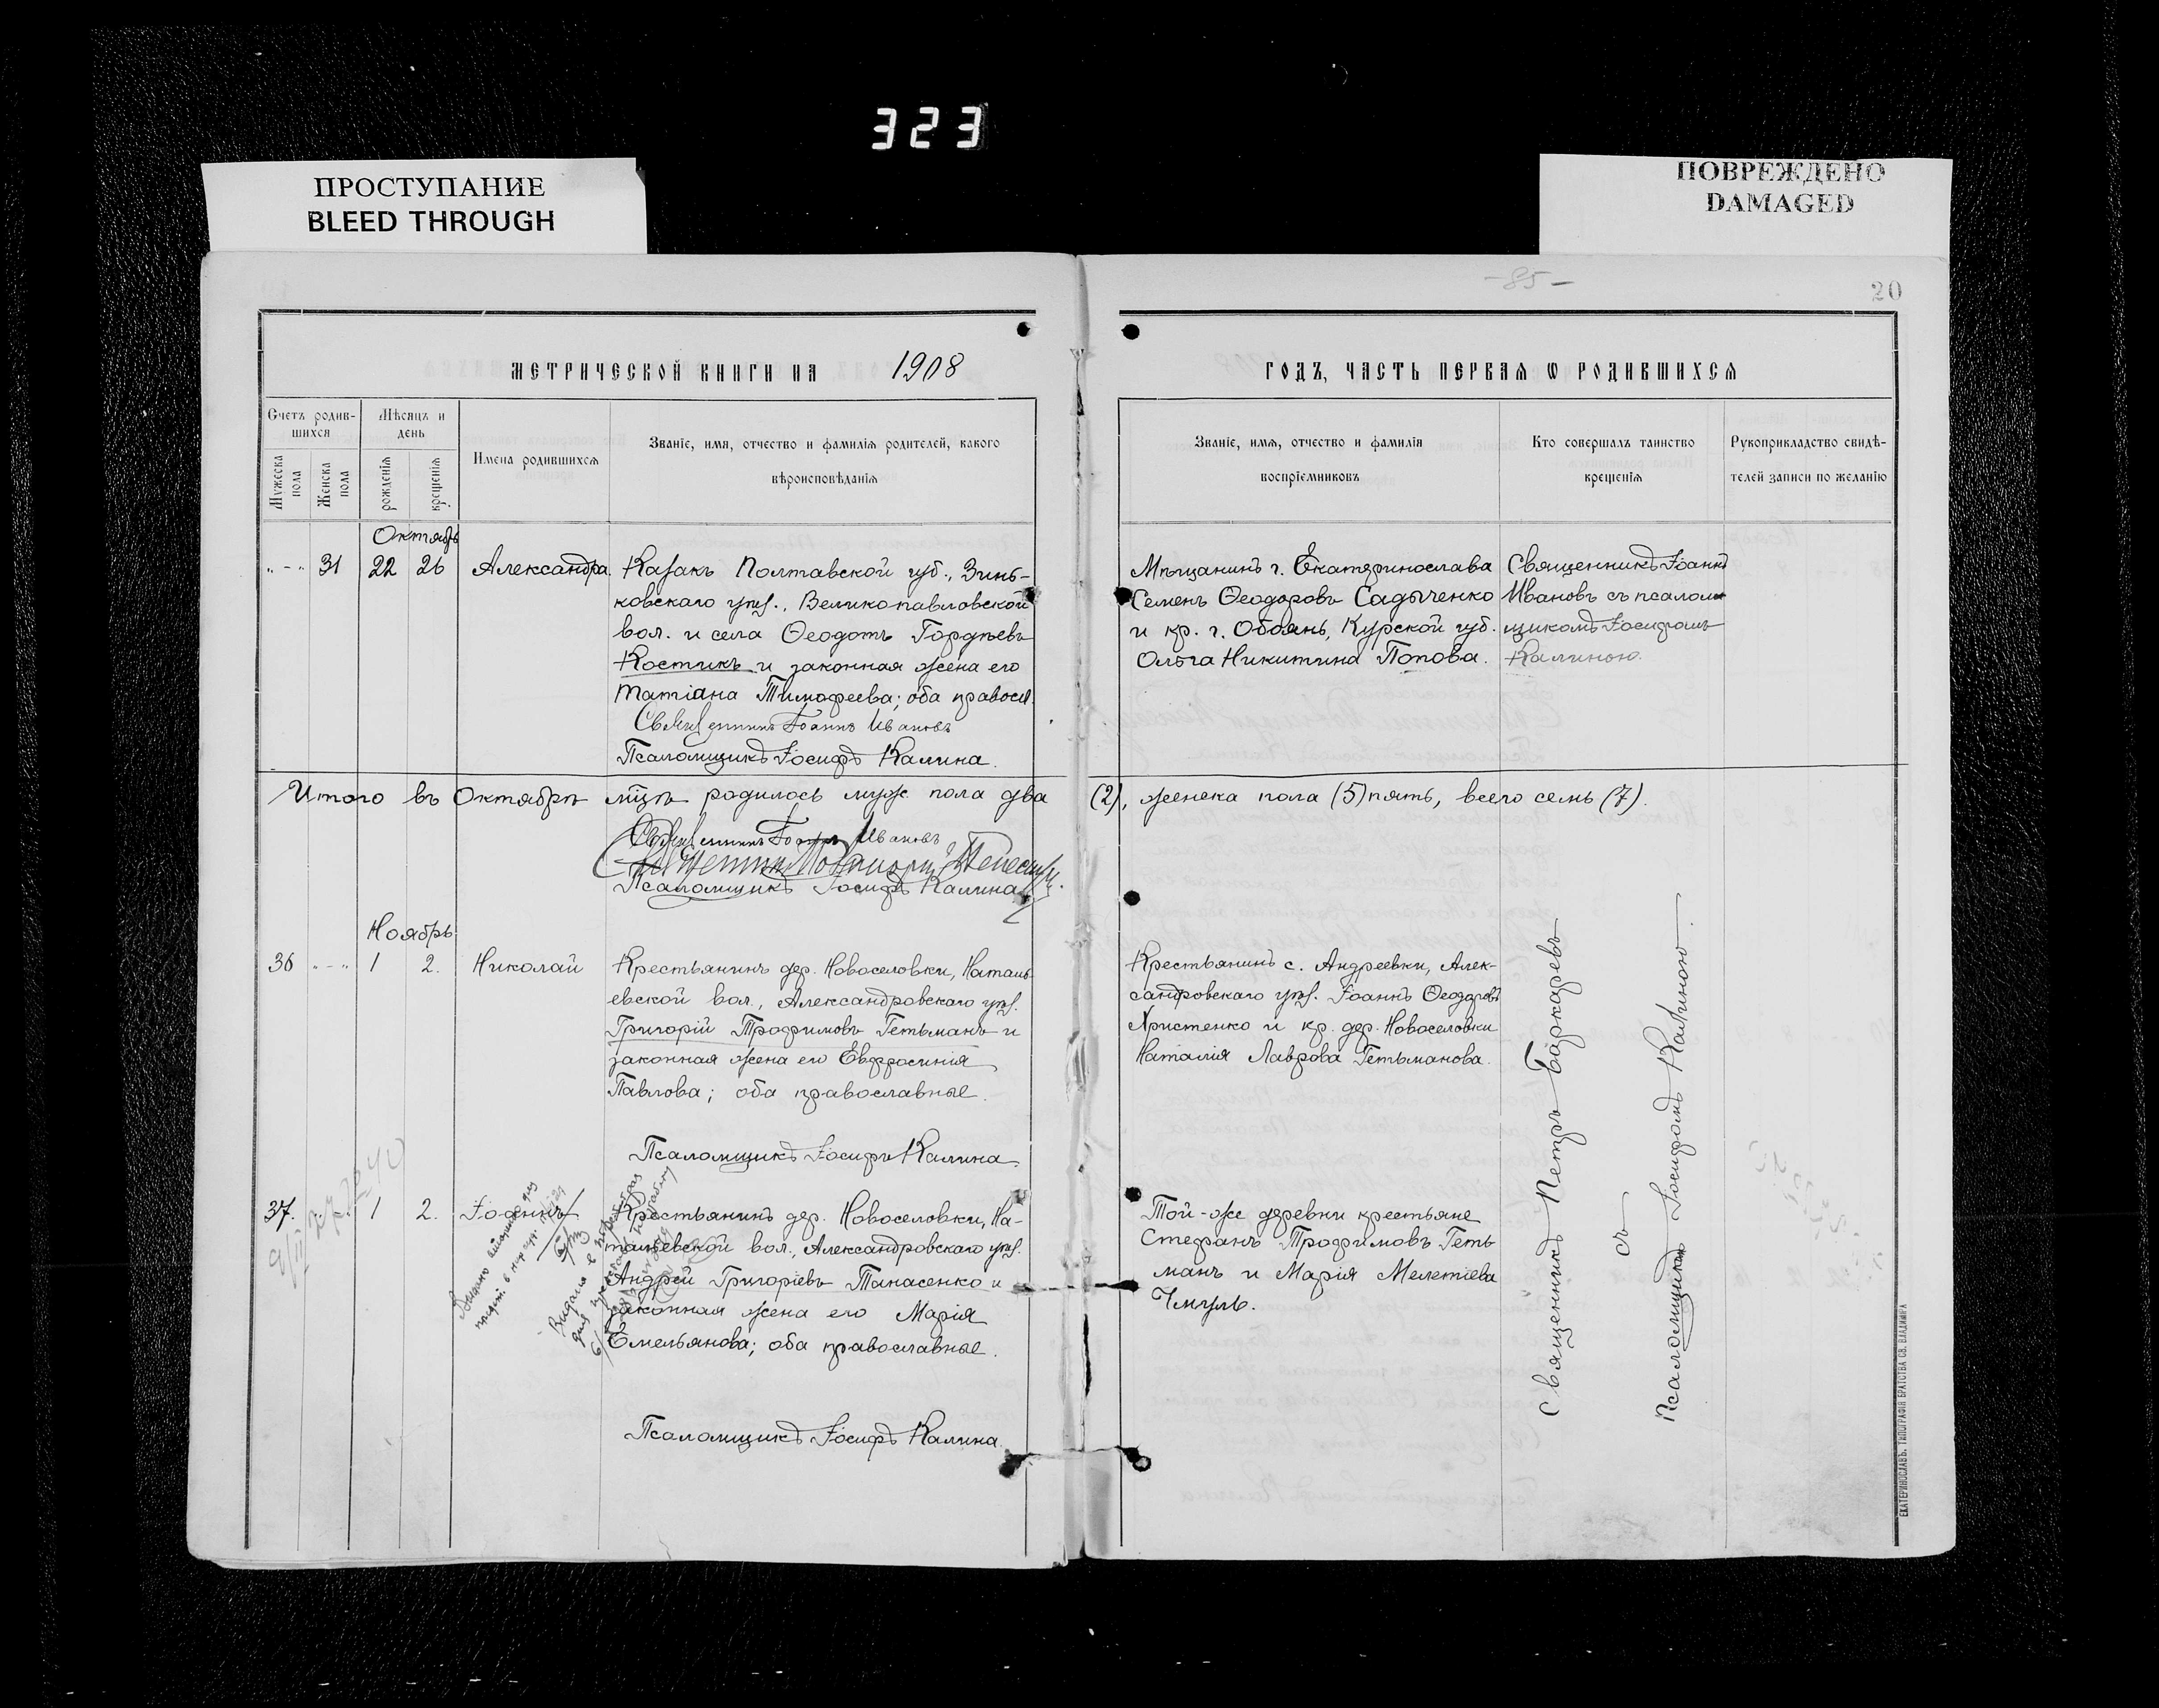 323
ПРОСТУПАНИЕ
BLEED THROUGH
ПОВРЕЖДЕНО
DAMAGED
-85-
20
МЕТРИЧЕСКОЙ КНИГИ НА 1908
ГОДЪ, ЧАСТЬ ПЕРВАЯ Ѡ РОДИВШИХСЯ
Счетъ родив-
шихся
Мужеска
пола
Женска
пола
Мѣсяцъ и
день
рожденія
крещенія
Имена родившихся
Званіе, имя, отчество и фамилія родителей, какого
вѣроисповѣданія
Званіе, имя, отчество и фамилія
воспріемниковъ
Кто совершалъ таинство
крещенія
Рукоприкладство свидѣ-
телей записи по желанію
Октябрь
„-„ 31 22 26 Александра.
Казакъ Полтавской губ., Зинь-
ковскаго уѣз., Великопавловской
вол. и села Ѳеодотъ Гордѣевъ
Костикъ и законная жена его
Татіана Тимофеева; оба правосл.
Священникъ Іоаннъ Ивановъ
Псаломщикъ Іосифъ Калина.
Мѣщанинъ г. Екатеринослава
Семенъ Ѳеодоровъ Садыченко
и кр. г. Обоянь, Курской губ.
Ольга Никитина Попова.
Священникъ Іоаннъ
Ивановъ съ псалом-
щикомъ Іосифомъ
Калиною.
Итого въ Октябрѣ мцѣ родилось муж. пола два (2), женска пола (5) пять, всего семь (7).
Священникъ Іоаннъ Ивановъ
Псаломщикъ Іосифъ Калина
Ноябрь
36 „-„ 1 2. Николай
Крестьянинъ дер. Новоселовки, Наталь-
евской вол., Александровскаго уѣз.
Григорій Трофимовъ Гетьманъ и
законная жена его Евфросинія
Павлова; оба православные.
Псаломщикъ Іосифъ Калина.
Крестьянинъ с. Андреевки, Алек-
сандровскаго уѣз. Іоаннъ Ѳеодоровъ
Христенко и кр. дер. Новоселовки
Наталія Лаврова Гетьманова.
37. 1 2. Іоаннъ
Крестьянинъ дер. Новоселовки, На-
тальевской вол., Александровскаго уѣз.
Андрей Григоріевъ Танасенко и
законная жена его Марія
Емельянова; оба православные.
Псаломщикъ Іосифъ Калина
Той-же деревни крестьяне
Стефанъ Трофимовъ Геть
манъ и Марія Мелетіева
Чмуль.
Священникъ Петръ Баркаревъ
съ
Псаломщикомъ Іосифомъ Калиною.
ЕКАТЕРИНОСЛАВЪ. ТИПОГРАФІЯ БРАТСТВА СВ. ВЛАДИМІРА